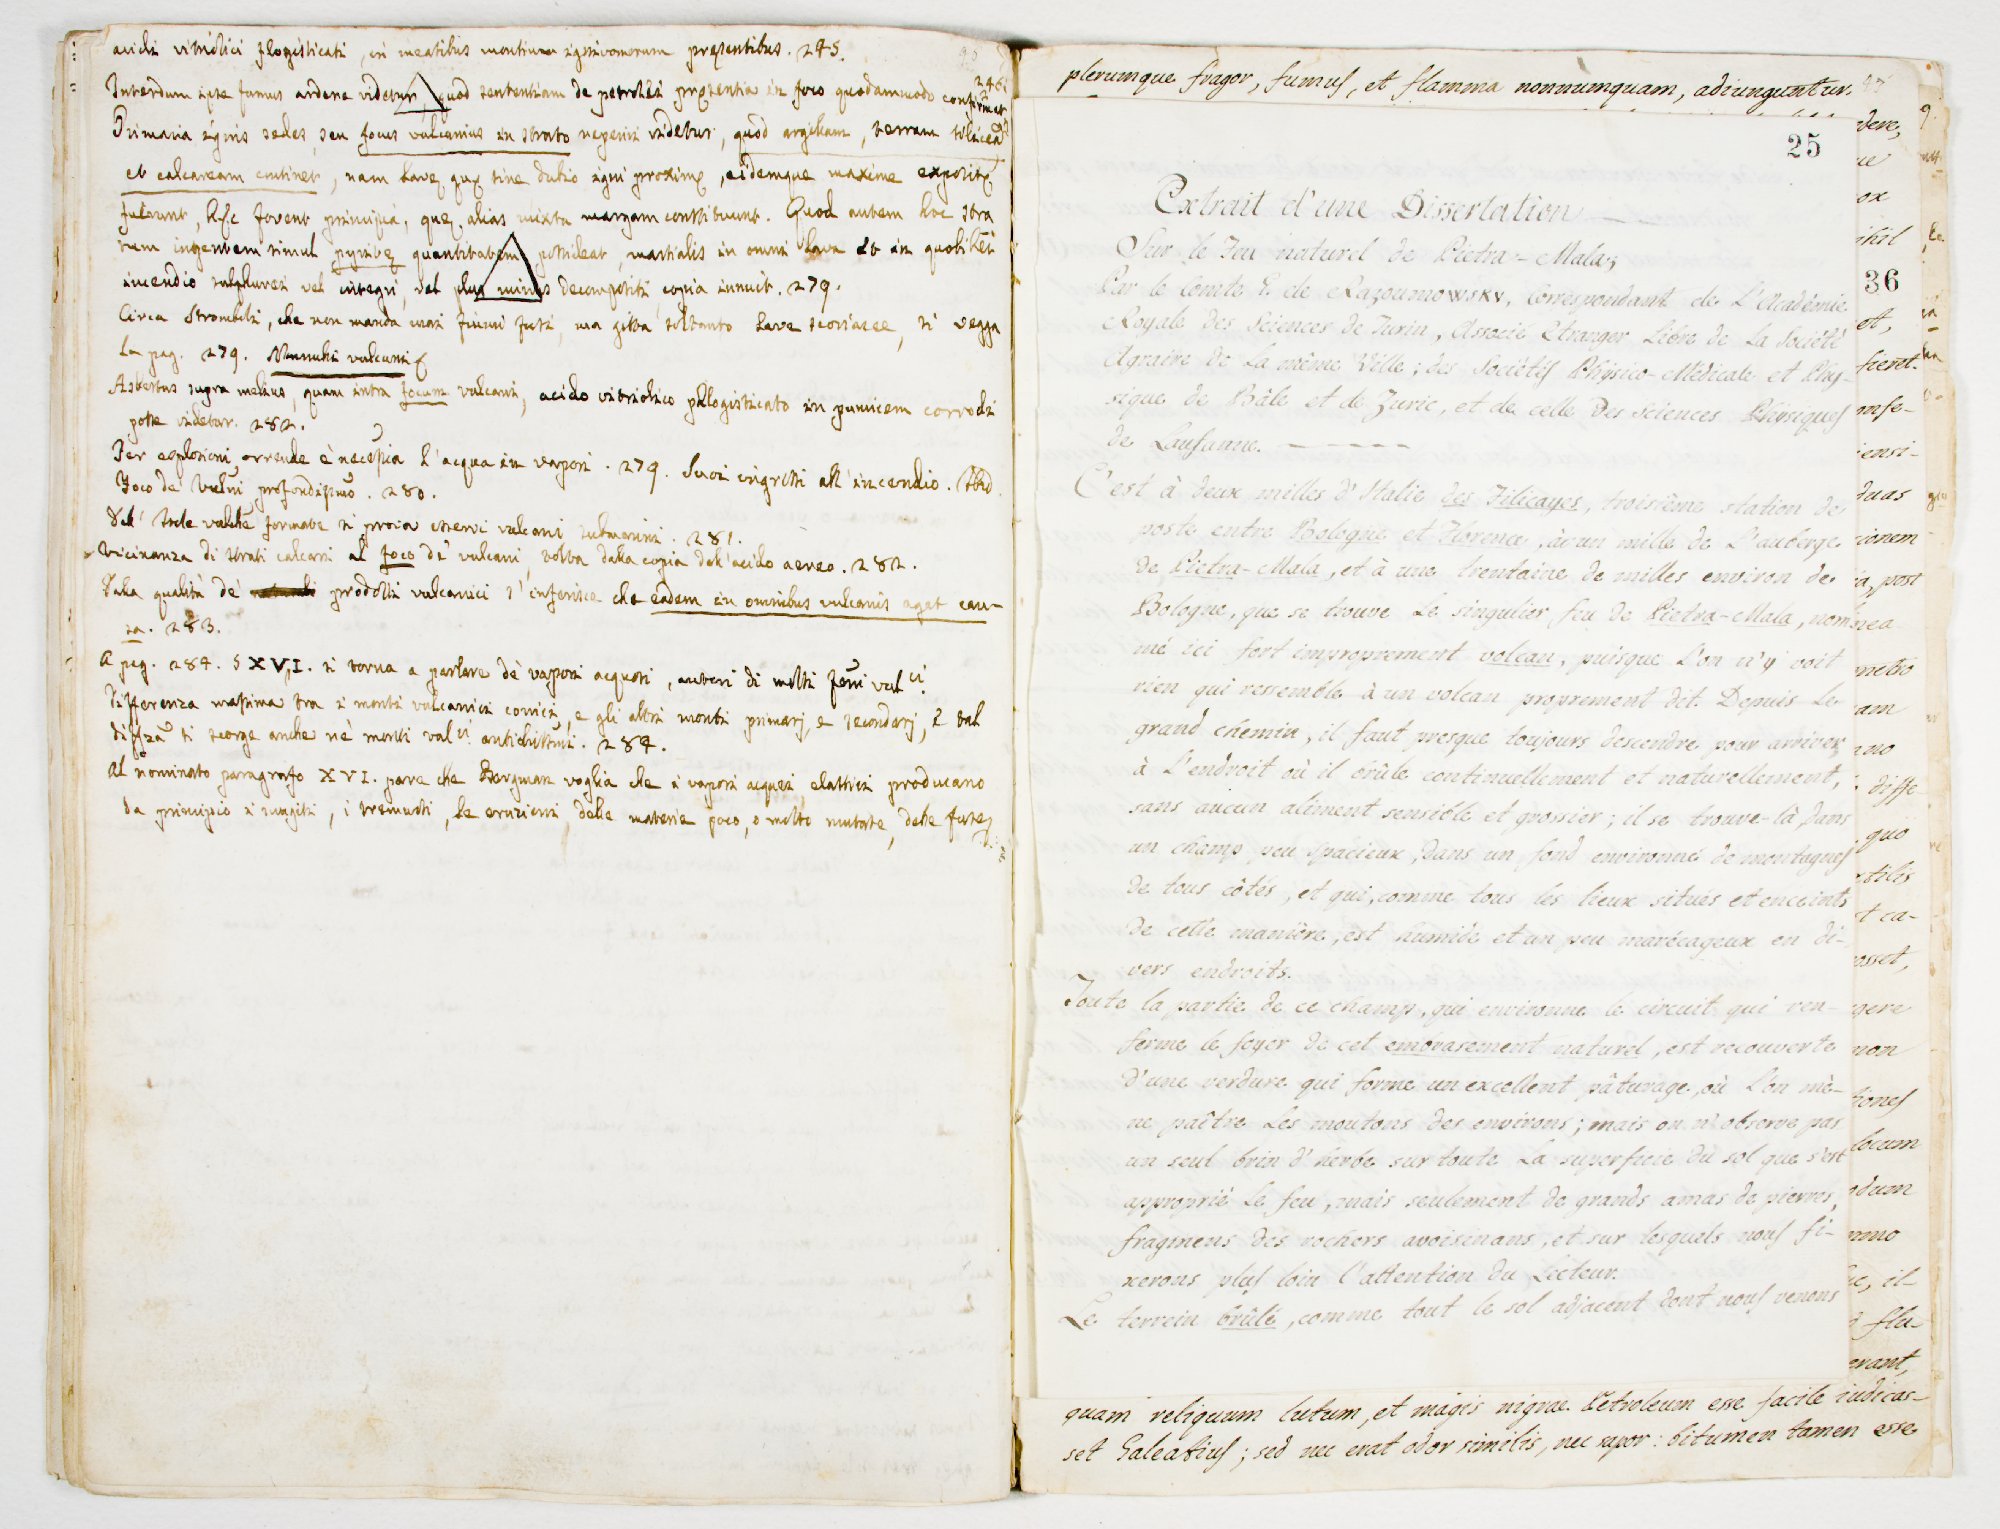 acidi vitriolici flogisticati, in meatibus montium ignivomorum presentibus. 245.
Interdum ipse fumus ardere videtur, quod sententiam de petrolei presentia in foco quodammodo confirmat 246.
Primaria ignis sedes, seu focus vulcanius in strato reperiri videtur, quod argillam, terram siliceã
et calcaream continet, nam lavę quę sine dubio igni proximę, eidemque maxime expositę
fuerunt, hęc fovent principia, quę alias mixta margam constituunt. Quod autem hoc stra
tum ingentem simul pyritę quantitatem possideat, martialis in omni lava et in quolibet
incendio sulphurei vel integri, vel plus minus decompositi copia innuit. 279.
Circa Stromboli, che non manda mai fiumi fusi, ma gitta soltanto lave scoriacee, si vegga
la pag. 279. Nonnulli vulcani
Asbestus supra melius, quam intra focum vulcani, acido vitriolico phlogisticato in pumicem corrodi
posse videtur. 282.
Per esplosioni orrende è necessia l'acqua in vapori. 279. Suoi ingressi all'incendio. Ibid.
Foco de' Vulni profondissimo. 280.
Dell'Isole valche formate si prova esservi vulcani submarini. 281.
Vicinanza di strati calcari al foco de' vulcani, volta dalla copia dell'acido aereo. 282.
Dalla qualità de' prodotti vulcanici s'inferisce che eadem in omnibus vulcanis agat cau-
sa. 283.
A pag. 284. § XVI. si torna a parlare de' vapori acquosi, autori di molti feni valci.
Differenza massima tra i monti vulcanici conici, e gli altri monti primarj, e secondarj, e tal
diffza si scorge anche nè monti valci antichissimi. 284.
Al nominato paragrafo XVI. pare che Bergman voglia che i vapori acquei elastici producano
da principio i muggiti, i tremuoti, le eruzioni, delle materie poco, o molto mutate, delle fuse,
plerumque fragor, fumus, et flamma nonnumquam, adiunguntur.
25
Extrait d'une Dissertation
Sur le Feu naturel de Pietra-Mala;
Par le Comte G. de Razoumowsky, Correspondant de L'Académie
Royale des Sciences de Turin, Associé Etranger Libre de La Société
Agraire de La même Ville; des Sociétés Physico-Médicale et Phy-
sique de Bâle et de Zuric, et de celle des Sciences Physiques
de Lausanne.
C'est à deux milles d'Italie des Filicayes, troisième station de
poste entre Bologne et Florence, à un mille de L'auberge
de Pietra-Mala, et à une trentaine de milles environ de
Bologne, que se trouve Le singulier feu de Pietra-Mala, nom-
mé ici fort improprement volcan, puisque L'on n'y voit
rien qui ressemble à un volcan proprement dit. Depuis Le
grand chemin, il faut presque toujours descendre pour arriver
à L'endroit où il brûle continuellement et naturellement,
sans aucun aliment sensible et grossier; il se trouve-là dans
un champ peu spacieux, dans un fond environné de montagnes
de tous côtés, et qui, comme tous les lieux situés et enceints
de cette manière, est humide et un peu marécageux en di-
vers endroits.
Toute la partie de ce champ, qui environne le circuit qui ren-
ferme le foyer de cet embrasement naturel, est recouverte
d'une verdure qui forme un excellent pâturage, où L'on mè-
ne paître Les moutons des environs; mais on n'observe pas
un seul brin d'herbe sur toute La superficie du sol que s'est
approprié Le feu, mais seulement de grands amas de pierres,
fragmens des rochers avoisinans, et sur lesquels nous fi-
xerons plus loin l'attention du Lecteur.
Le terrein brûlé, comme tout le sol adjacent dont nous venons
quam reliquum lutum, et magis nigrae. Petroleum esse facile iudicas-
set Galeatius; sed nec erat odor similis, nec sapor: bitumen tamen esse
36